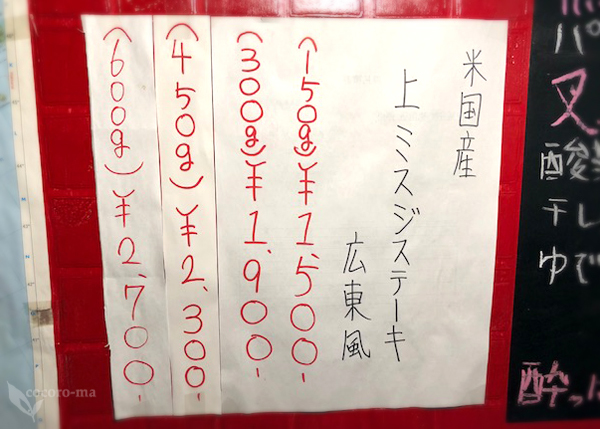 米国産
上ミスジステーキ
広東風
(150g)¥1,500-
(300g)¥1,900-
(450g)¥2,300-
(600g)¥2,700-
パ
叉
酸
干し
ゆで
酔っ
cocoro-ma